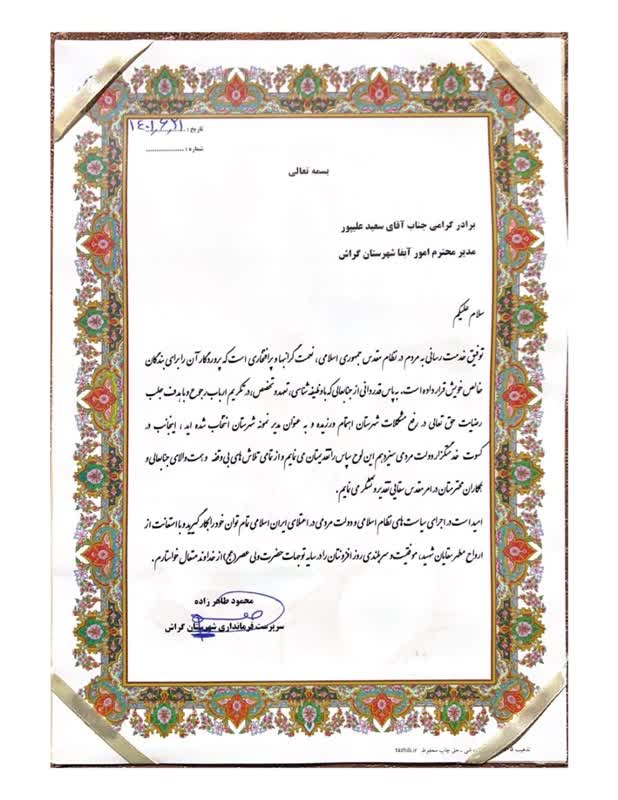 تاریخ : ۱۴۰۱/۶/۲۱
شماره : ..................
بسمه تعالی
برادر گرامی جناب آقای سعید علیپور
مدیر محترم امور آبفا شهرستان گراش
سلام علیکم
توفیق خدمت رسانی به مردم در نظام مقدس جمهوری اسلامی، نعمت گرانبها و پرافتخاری است که پروردگار آن را برای بندگان
خالص خویش قرار داده است. به پاس قدردانی از جنابعالی که با وظیفه شناسی، تعهد و تخصص، در تکریم ارباب رجوع و با هدف جلب
رضایت حق تعالی در رفع مشکلات شهرستان اهتمام ورزیده و به عنوان مدیر نمونه شهرستان انتخاب شده اید، اینجانب در
کسوت خدمتگزار دولت مردمی سیزدهم این لوح سپاس را تقدیمتان می نمایم و از تمامی تلاش های بی وقفه و همت والای جنابعالی و
همکاران محترمتان در امر مقدس سقایی تقدیر و تشکر می نمایم.
امید است در اجرای سیاست های نظام اسلامی و دولت مردمی در اعتلای ایران اسلامی تمام توان خود را بکار گیرید و با استعانت از
ارواح مطهر سقایان شهید، موفقیت و سربلندی روز افزونتان را در سایه توجهات حضرت ولی عصر (عج) از خداوند متعال خواستارم.
محمود طاهر زاده
سرپرست فرمانداری شهرستان گراش
تذهیب ۲۰۵ حق چاپ محفوظ tazhib.ir